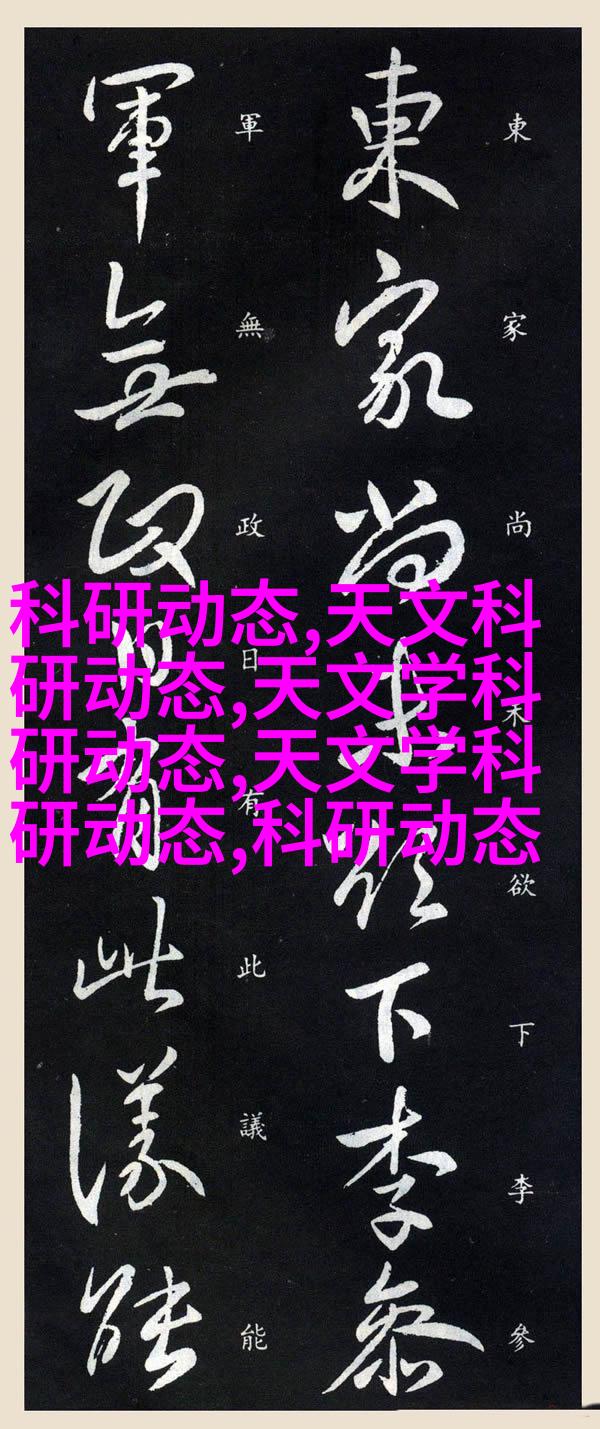 東家尚未欲下李參
軍無政日有此議能
東家尚未欲下李參
軍無政日有此議能
科研动态,天文科
研动态,天文学科
研动态,天文学科
研动态,科研动态